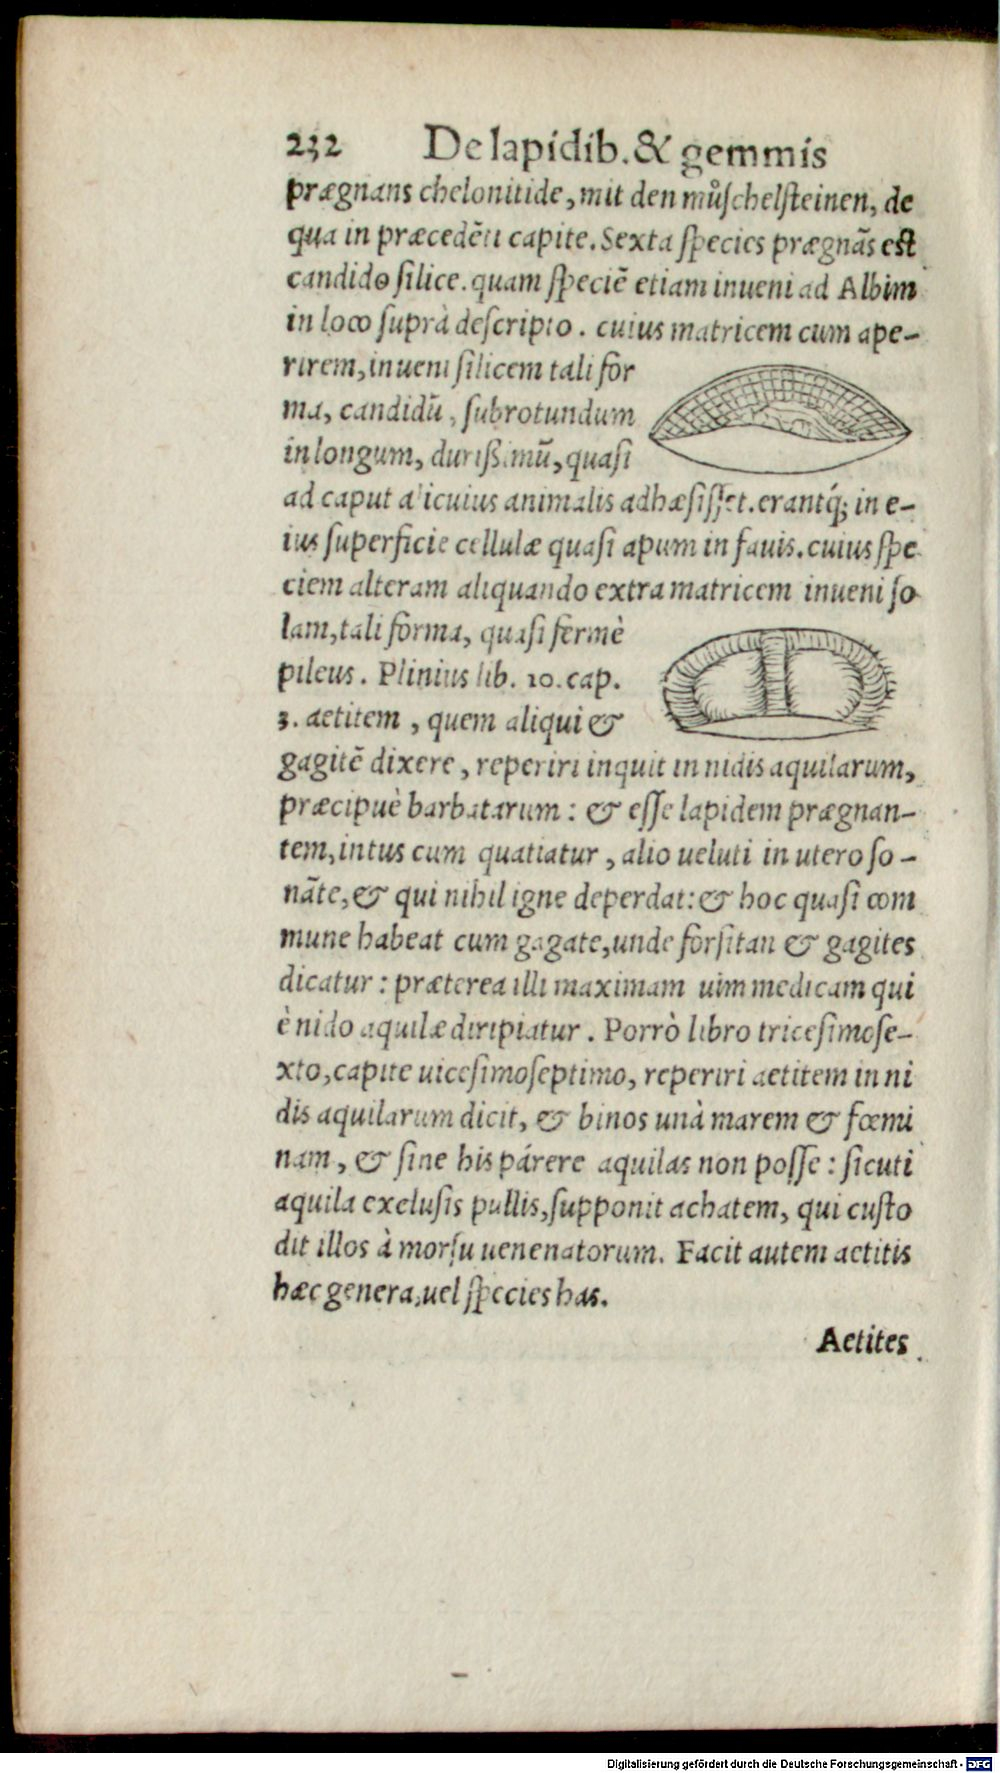 232 De lapidib. & gemmis
prægnans chelonitide, mit den můſchelſteinen, de
qua in præcedẽti capite. Sexta ſpecies prægnãs est
candido ſilice. quam ſpeciẽ etiam inueni ad Albim
in loco ſuprà deſcripto. cuius matricem cum ape-
rirem, inueni ſilicem tali for
ma, candidũ, ſubrotundum
in longum, durißimũ, quaſi
ad caput alicuius animalis adhæſiſſet. erantq́; in e-
ius ſuperficie cellulæ quaſi apum in fauis. cuius ſpe
ciem alteram aliquando extra matricem inueni ſo
lam, tali forma, quaſi fermè
pileus. Plinius lib. 10. cap.
3. aetitem, quem aliqui &
gagitẽ dixere, reperiri inquit in nidis aquilarum,
præcipuè barbatarum: & eſſe lapidem prægnan-
tem, intus cum quatiatur, alio ueluti in utero ſo-
nãte, & qui nihil igne deperdat: & hoc quaſi com
mune habeat cum gagate, unde forſitan & gagites
dicatur: præterea illi maximam uim medicam qui
è nido aquilæ diripiatur. Porrò libro triceſimoſe-
xto, capite uiceſimoſeptimo, reperiri aetitem in ni
dis aquilarum dicit, & binos unà marem & fœmi
nam, & ſine his párere aquilas non poſſe: ſicuti
aquila excluſis pullis, ſupponit achatem, qui cuſto
dit illos à morſu uenenatorum. Facit autem aetitis
hæc genera, uel ſpecies has.
Aetites
Digitalisierung gefördert durch die Deutsche Forschungsgemeinschaft - DFG